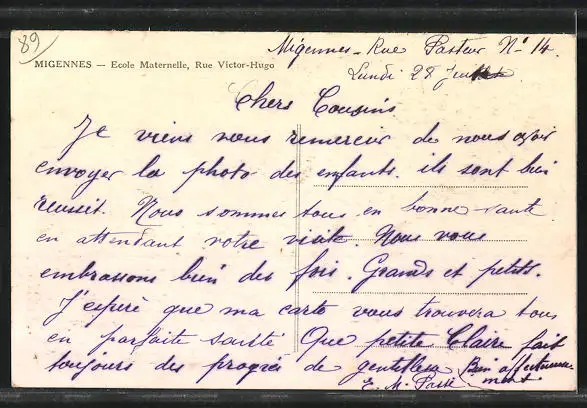 89
Migennes - Rue Pasteur N° 14.
MIGENNES — Ecole Maternelle, Rue Victor-Hugo
Lundi 28
Chers Cousins
Je viens vous remercier de nous avoir
envoyer la photo des enfants. ils sont bien
reussit. Nous sommes tous en bonne santé
en attendant votre visite. Nous vous
embrassons bien des fois. Grands et petits.
J'espère que ma carte vous trouvera tous
en parfaite santé Que petite Claire fait
toujours des progrès de gentilless Bien affectueuse-
ment
E. M.